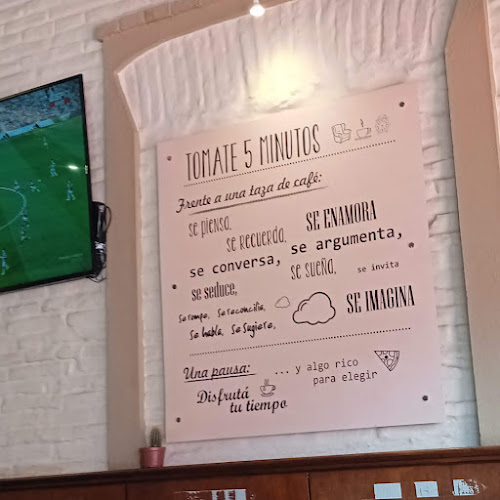 TOMATE 5 MINUTOS
Frente a una taza de café:
se piensa,
se recuerda,
SE ENAMORA
se conversa, se argumenta,
se seduce,
se sueña,
se invita
Se rompe, Se reconcilia,
Se habla, Se sugiere,
SE IMAGINA
Una pausa:
... y algo rico
para elegir
Disfrutá
tu tiempo